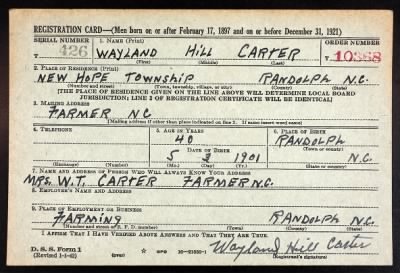 REGISTRATION CARD—(Men born on or after February 17, 1897 and on or before December 31, 1921)
SERIAL NUMBER 1. NAME (Print) ORDER NUMBER
426 WAYLAND Hill CARTER 10368
(First) (Middle) (Last)
2. PLACE OF RESIDENCE (Print)
NEW HOPE TOWNSHIP RANDOLPH N.C.
(Number and street) (Town, township, village, or city) (County) (State)
[THE PLACE OF RESIDENCE GIVEN ON THE LINE ABOVE WILL DETERMINE LOCAL BOARD
JURISDICTION; LINE 2 OF REGISTRATION CERTIFICATE WILL BE IDENTICAL]
3. MAILING ADDRESS
FARMER N.C
[Mailing address if other than place indicated on line 2. If same insert word same]
4. TELEPHONE 5. AGE IN YEARS 6. PLACE OF BIRTH
40 RANDOLPH
DATE OF BIRTH (Town or county)
5 3 1901 N.C.
(Exchange) (Number) (Mo.) (Day) (Yr.) (State or country)
7. NAME AND ADDRESS OF PERSON WHO WILL ALWAYS KNOW YOUR ADDRESS
MRS. W.T. CARTER FARMER N.C.
8. EMPLOYER'S NAME AND ADDRESS
9. PLACE OF EMPLOYMENT OR BUSINESS
FARMING RANDOLPH N.C.
(Number and street or R. F. D. number) (Town) (County) (State)
I AFFIRM THAT I HAVE VERIFIED ABOVE ANSWERS AND THAT THEY ARE TRUE.
D. S. S. Form 1
(Revised 1-1-42) (over) GPO 16-21630-1 Wayland Hill Carter
(Registrant's signature)